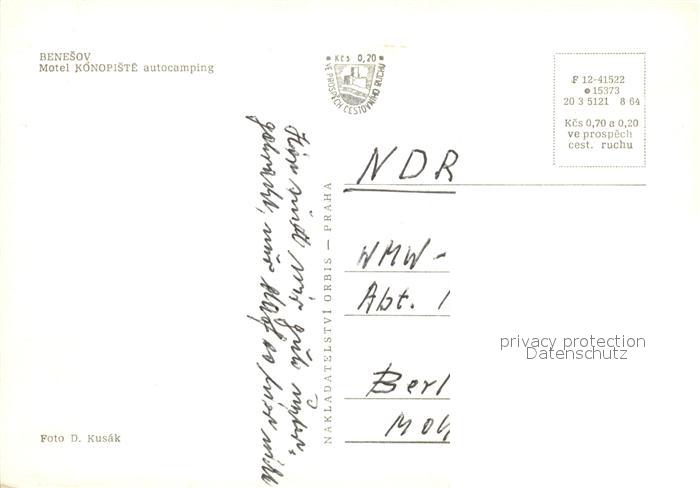 BENEŠOV
Motel KONOPIŠTĚ autocamping
Kčs 0,20
VE PROSPĚCH CESTOVNÍHO RUCHU
F 12-41522
15373
20 3 5121 8 64
Kčs 0,70 a 0,20
ve prospěch
cest. ruchu
Hier sind wir gut
hier
NAKLADATELSTVÍ ORBIS — PRAHA
NDR
WMW-
Abt. 1
Berl
privacy protection
Datenschutz
Foto D. Kusák